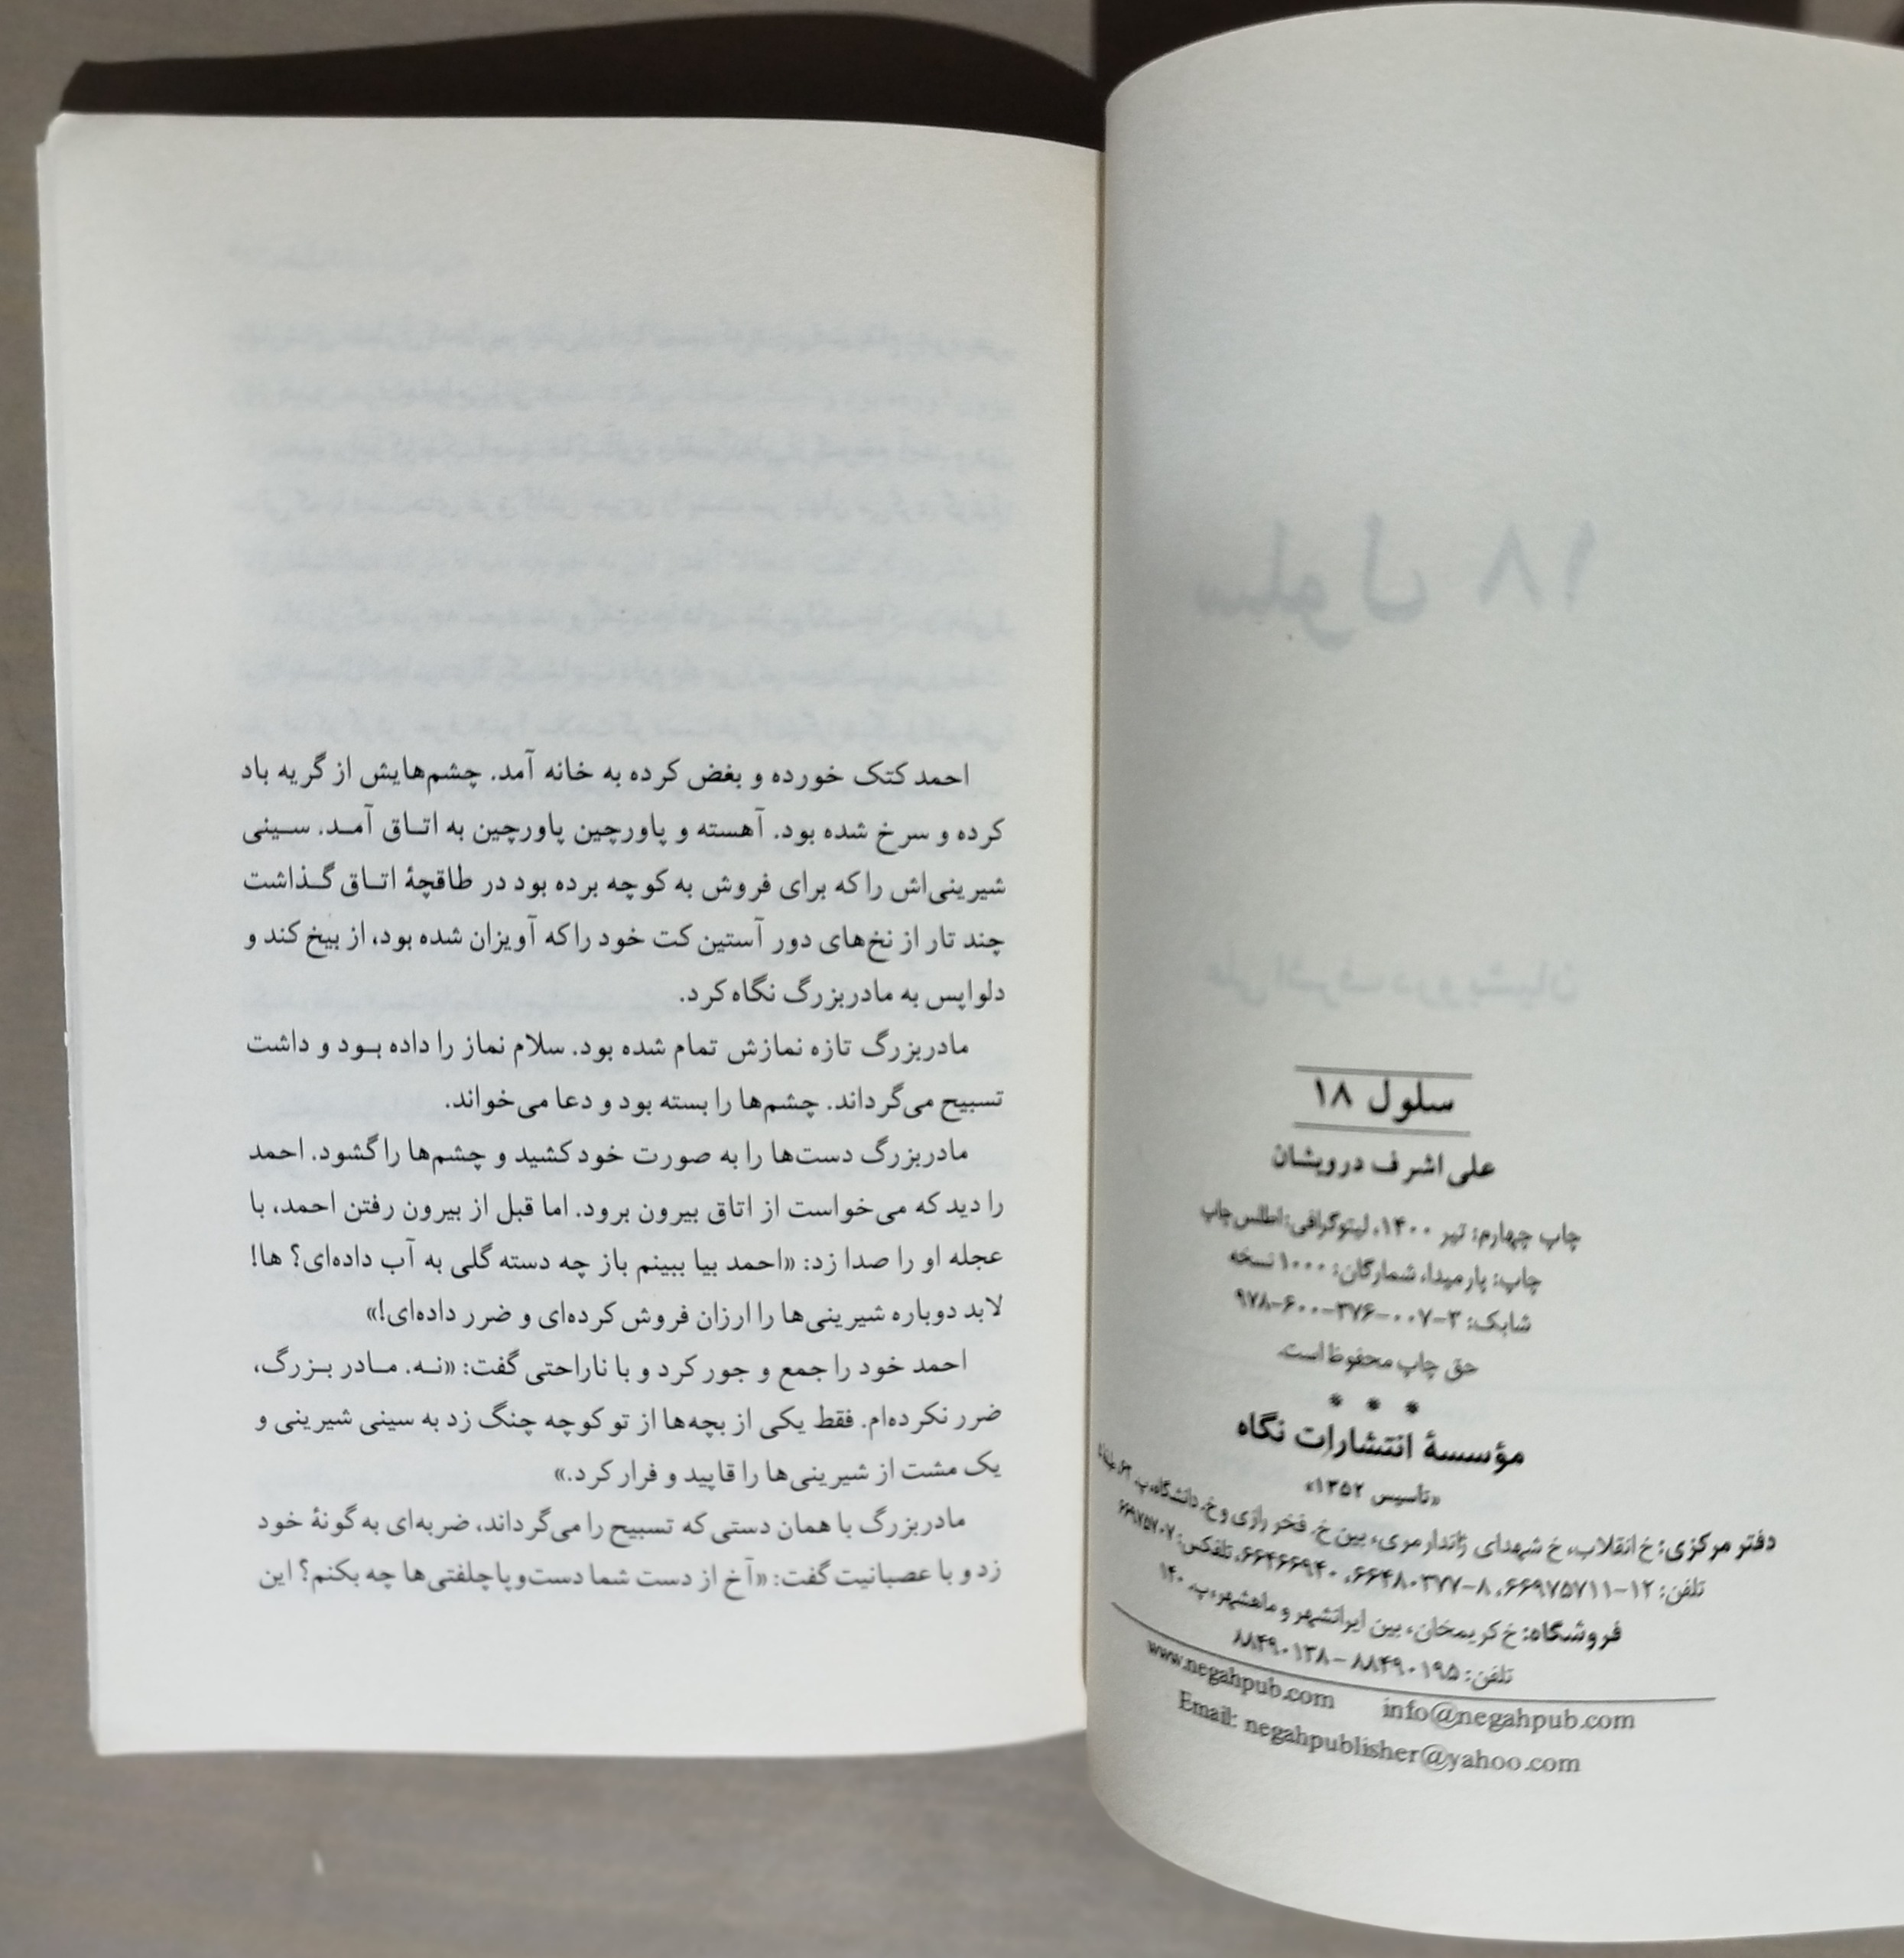 سلول ۱۸
علی اشرف درویشیان
سلول ۱۸
علی اشرف درویشان
چاپ چهارم: تیر ۱۴۰۰، لیتوگرافی: اطلس‌چاپ
چاپ: پارمیدا، شمارگان: ۱۰۰۰ نسخه
شابک: ۳-۰۰۷-۳۷۶-۶۰۰-۹۷۸
حق چاپ محفوظ است.
* * *
مؤسسهٔ انتشارات نگاه
«تأسیس ۱۳۵۲»
دفتر مرکزی: خ انقلاب، خ شهدای ژاندارمری، بین خ. فخر رازی و خ. دانشگاه، پ. ۶۳
تلفن: ۱۲-۶۶۹۷۵۷۱۱، ۸-۶۶۴۸۰۳۷۷، ۶۶۴۶۶۹۴۰، تلفکس: ۶۶۹۷۵۷۰۷
فروشگاه: خ کریمخان، بین ایرانشهر و ماهشهر، پ. ۱۴۰
تلفن: ۸۸۴۹۰۱۳۸ – ۸۸۴۹۰۱۹۵
www.negahpub.com info@negahpub.com
Email: negahpublisher@yahoo.com
احمد کتک خورده و بغض کرده به خانه آمد. چشم‌هایش از گریه باد
کرده و سرخ شده بود. آهسته و پاورچین پاورچین به اتـاق آمـد. سـینی
شیرینی‌اش را که برای فروش به کوچه برده بود در طاقچهٔ اتـاق گـذاشت
چند تار از نخ‌های دور آستین کت خود را که آویزان شده بود، از بیخ کند و
دلواپس به مادربزرگ نگاه کرد.
مادربزرگ تازه نمازش تمام شده بود. سلام نماز را داده بـود و داشت
تسبیح می‌گرداند. چشم‌ها را بسته بود و دعا می‌خواند.
مادربزرگ دست‌ها را به صورت خود کشید و چشم‌ها را گشود. احمد
را دید که می‌خواست از اتاق بیرون برود. اما قبل از بیرون رفتن احمد، با
عجله او را صدا زد: «احمد بیا ببینم باز چه دسته گلی به آب داده‌ای؟ ها!
لابد دوباره شیرینی‌ها را ارزان فروش کرده‌ای و ضرر داده‌ای!»
احمد خود را جمع و جور کرد و با ناراحتی گفت: «نـه. مـادر بـزرگ،
ضرر نکرده‌ام. فقط یکی از بچه‌ها از تو کوچه چنگ زد به سینی شیرینی و
یک مشت از شیرینی‌ها را قاپید و فرار کرد.»
مادربزرگ با همان دستی که تسبیح را می‌گرداند، ضربه‌ای به گونهٔ خود
زد و با عصبانیت گفت: «آخ از دست شما دست‌وپاچلفتی‌ها چه بکنم؟ این